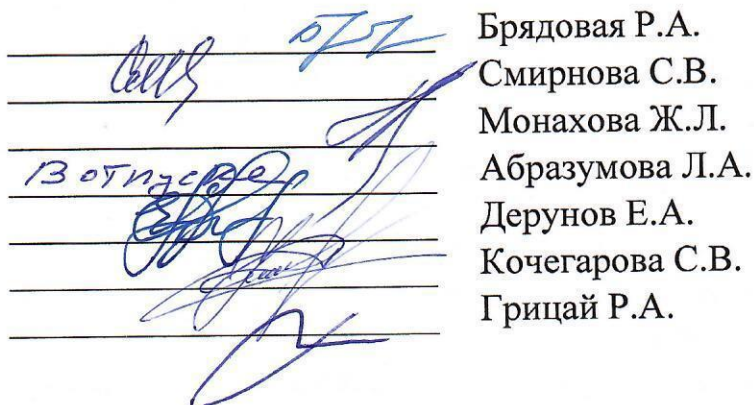 Брядовая Р.А.
Смирнова С.В.
Монахова Ж.Л.
В отпуске Абразумова Л.А.
Дерунов Е.А.
Кочегарова С.В.
Грицай Р.А.